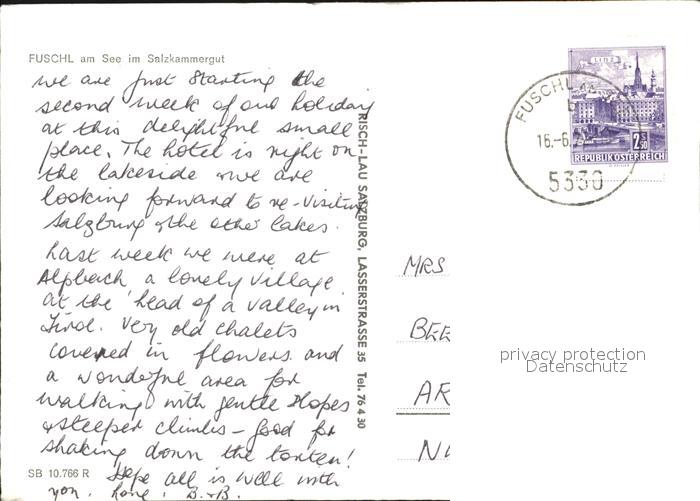 FUSCHL am See im Salzkammergut
we are just starting the
second week of our holiday
at this delightful small
place. The hotel is right on
the lakeside & we are
looking forward to re-visiting
Salzburg & the other lakes.
Last week we were at
Alpbach, a lovely village
at the head of a valley in
Tirol. Very old chalets
covered in flowers and
a wonderful area for
walking with gentle slopes
& steeper climbs – good for
shaking down the torten!
Hope all is well with
you. Love, B. & B.
SB 10.766 R
RISCH-LAU SALZBURG, LASSERSTRASSE 35 Tel. 76 4 30
LINZ
2.50
REPUBLIK ÖSTERREICH
FUSCHL
b
16.-6.
5330
MRS
BEE
AR
privacy protection
Datenschutz